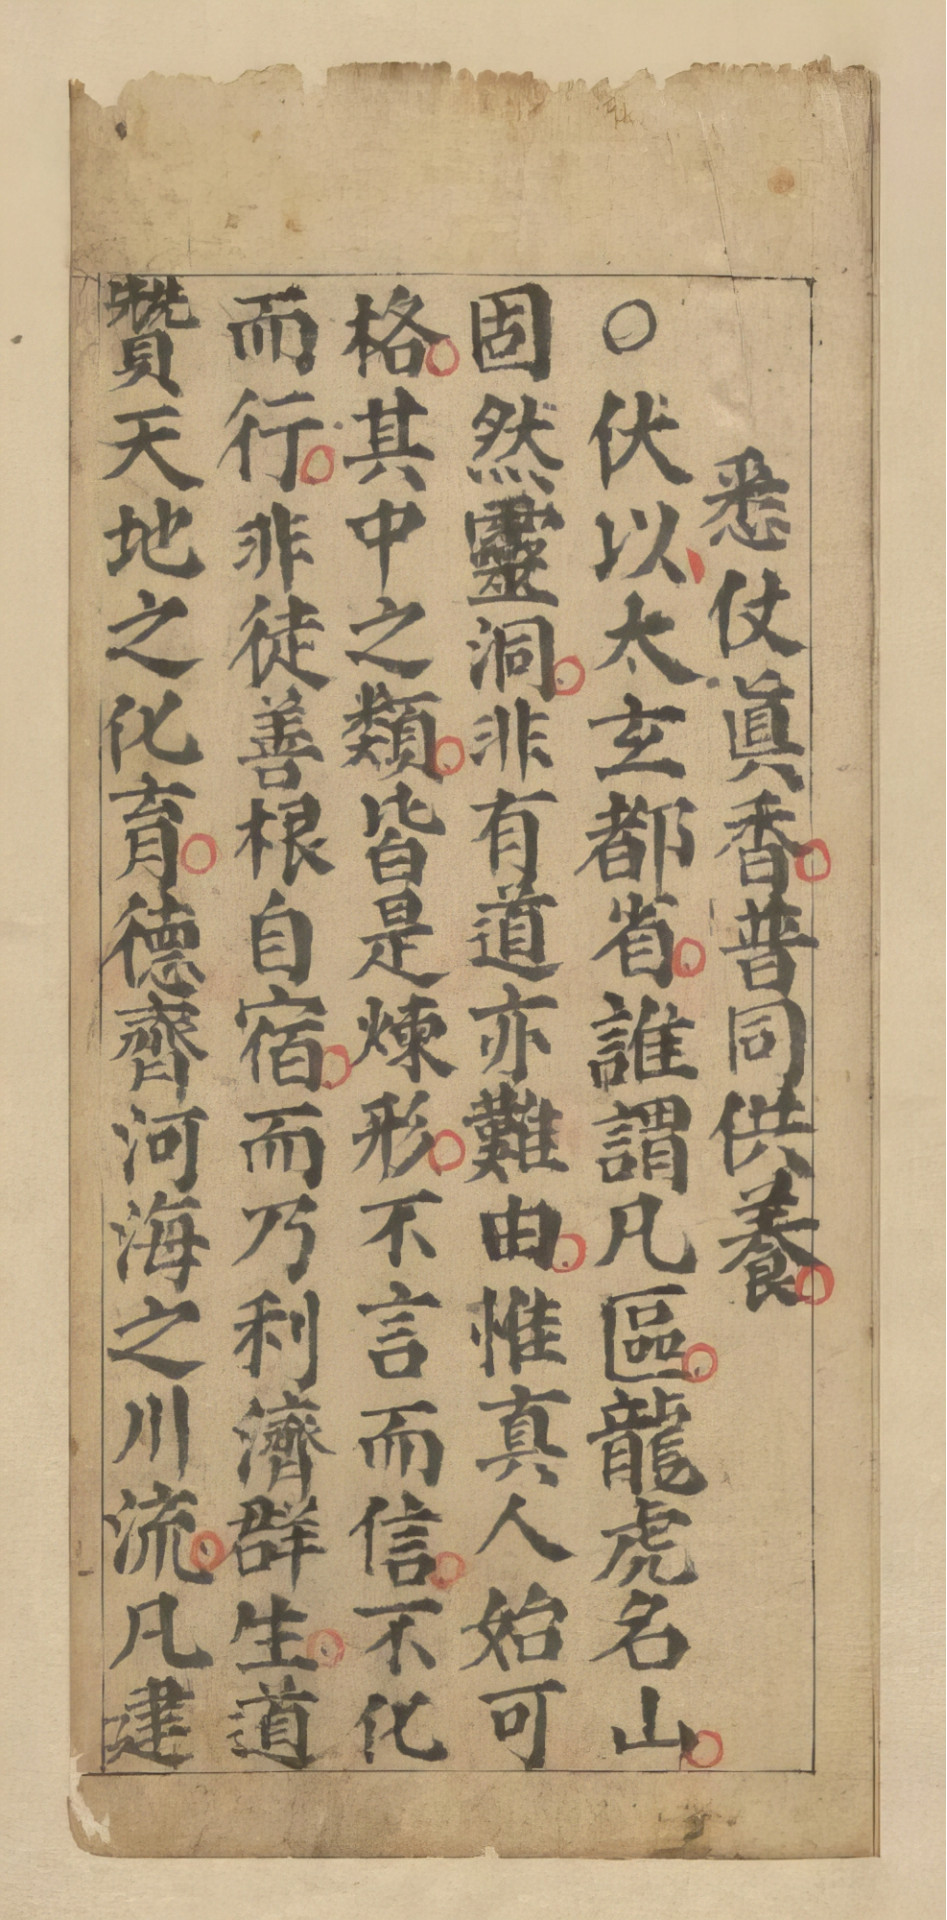 悉仗眞香普同供養
○伏以太玄都省誰謂凡區龍虎名山
固然靈洞非有道亦難由惟真人始可
格其中之類皆是煉形不言而信不化
而行非徒善根自宿而乃利濟群生道
贊天地之化育德齊河海之川流凡建